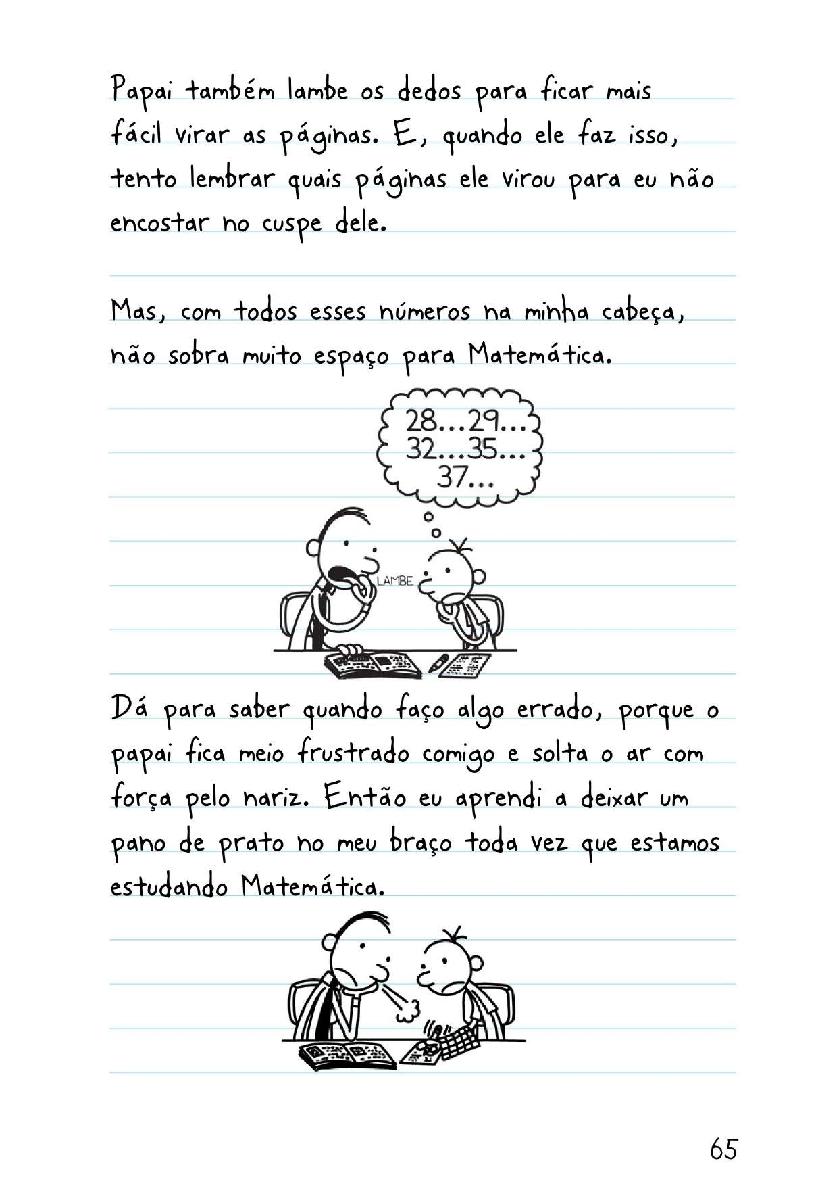 Papai também lambe os dedos para ficar mais
fácil virar as páginas. E, quando ele faz isso,
tento lembrar quais páginas ele virou para eu não
encostar no cuspe dele.
Mas, com todos esses números na minha cabeça,
não sobra muito espaço para Matemática.
28...29...
32...35...
37...
LAMBE
Dá para saber quando faço algo errado, porque o
papai fica meio frustrado comigo e solta o ar com
força pelo nariz. Então eu aprendi a deixar um
pano de prato no meu braço toda vez que estamos
estudando Matemática.
65